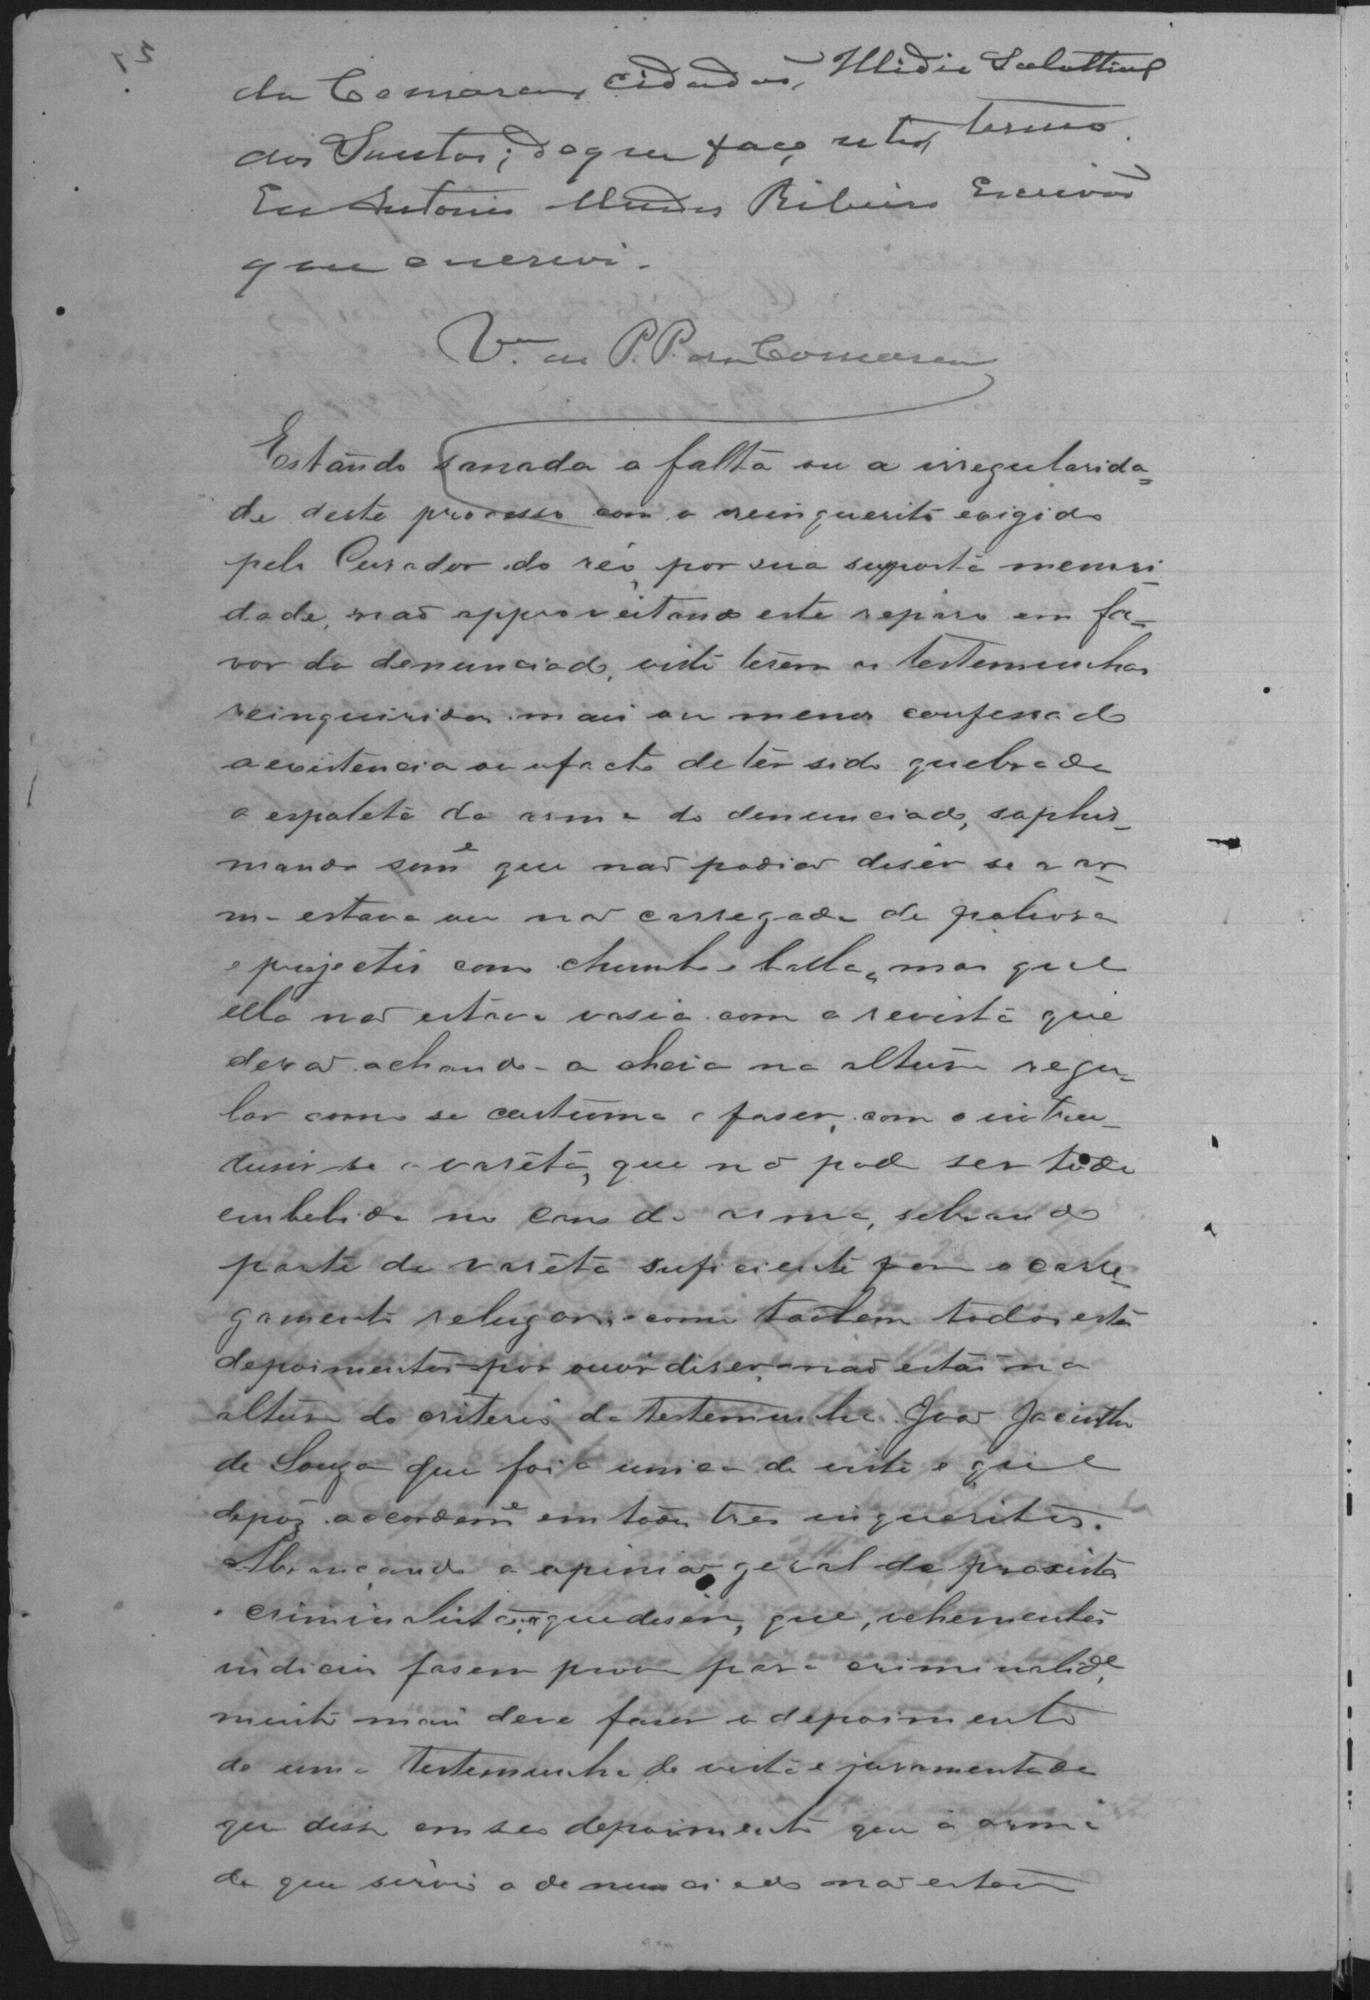 da Comarca, cidadão, Illidio Salathiel
dos Santos; do que faço este termo.
Eu Antonio Mendes Ribeiro Escrivão
que escrevi.
V.ta ao P. P. da Comarca
Estando sanada a falta ou a irregularida=
de deste processo com o reinquerito exigido
pelo Curador do réo, por sua supposta menori-
dade, não approveitando este reparo em fa=
vor do denunciado, visto terem as testemunhas
reinquiridas mais ou menos confessado
a existencia ou o facto de têr sido quebrada
a espoleta da arma do denunciado, sophis-
mando somᵉ que não podião disêr se a ar-
ma estava ou não carregada de polvora
e projectis como chumbo e balla, mas que
ella não estava vasia com a revista que
derão achando-a cheia na altura regu-
lar como se costuma a faser, com o intro-
dusir-se a varêta, que não pode ser toda
embebida no cano da arma, sobrando
parte da varêta suficiente para o carre-
gamento como tambem todos estes
depoimentos por ouvir diser, não estão na
altura do criterio da testemunha João Jacintho
de Souza que foi a unica de vista e que
depôz accordemᵉ em todos tres inqueritos.
Abraçando a opinião geral de praxistas
e criminalistas, que disêm, que, vehementes
indicios fasem prova para criminalidᵉ
muito mais deve faser o depoimento
de uma testemunha de vista e juramentada
que disse em seo depoimento que a arma
de que servio o denunciado não estava